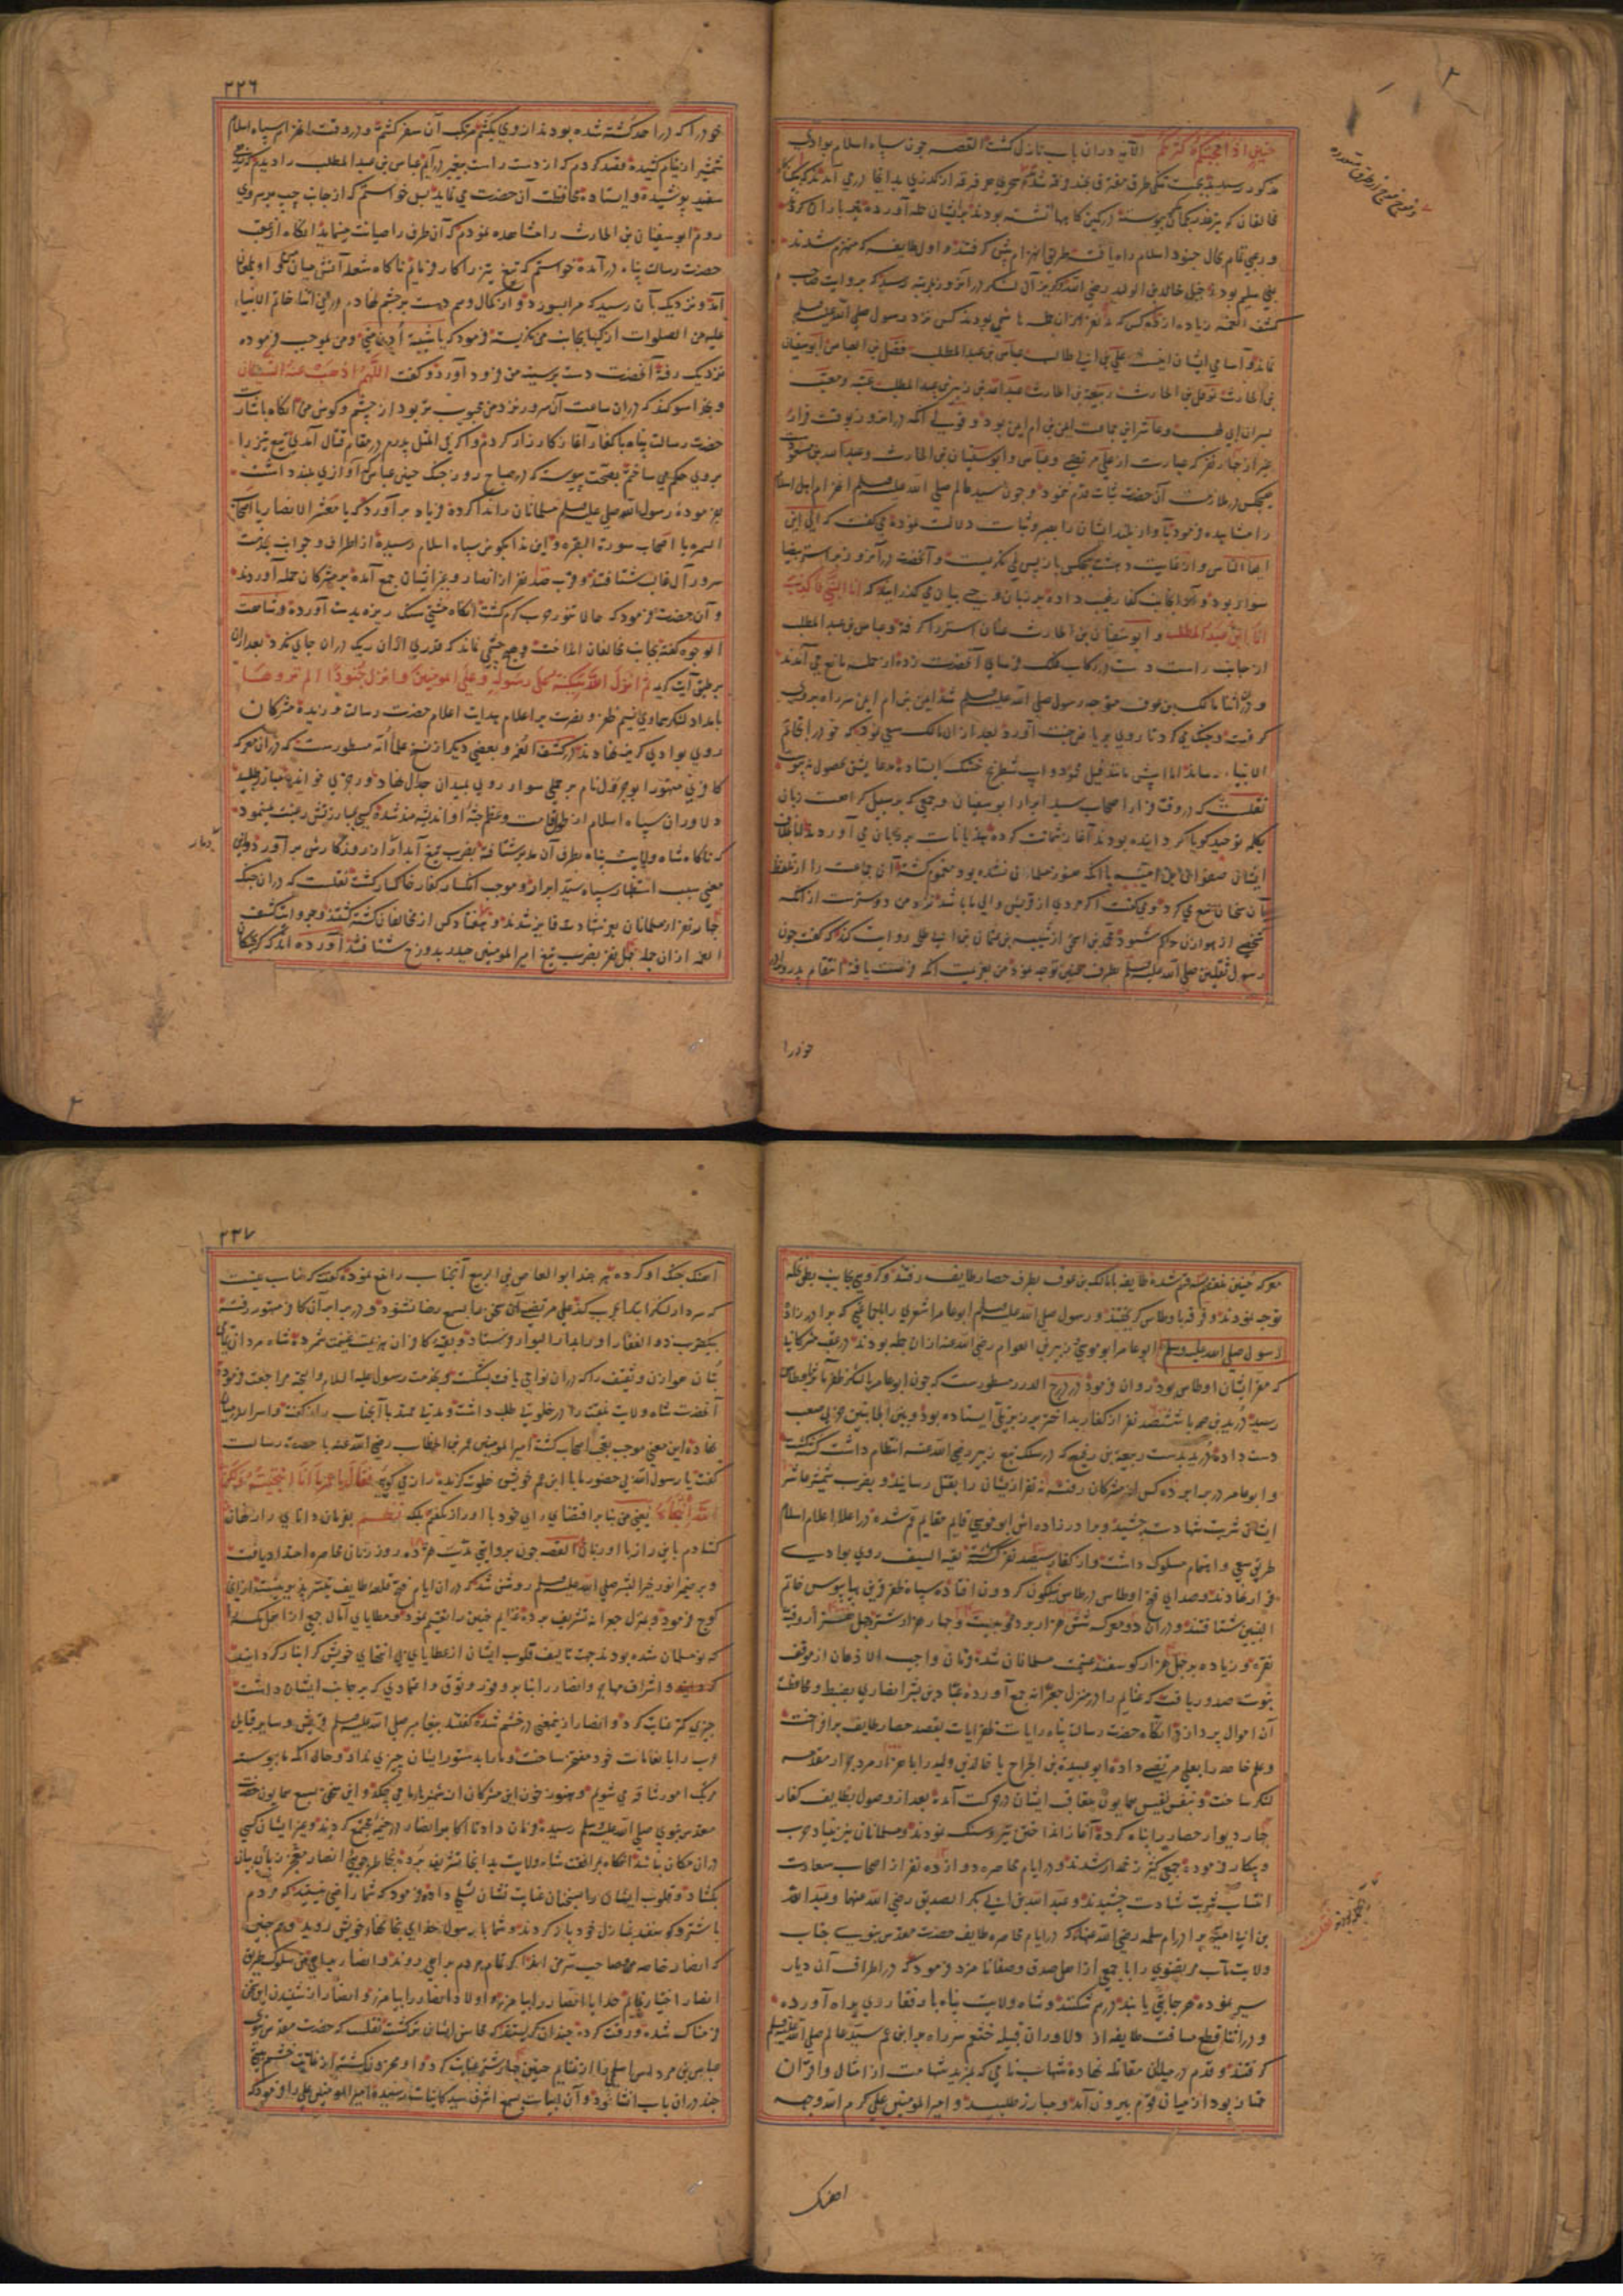 حنین اذ اعجبتکم کثرتکم الآیه در آن باب نازل کشت القصه چون سپاه اسلام بوادی
مذکور رسیدند بجهت تنکی طرق متفرق
مخالفان که
و رمی تمام بحال جنود اسلام راه یافت طریق انهزام پیش کرفتند و اول طایفه که منهزم شدند
بنی سلیم بودند خیل خالد بن الولید رضی الله
کشف الغمه زیاده از ده کس که نه نفر از آن جمله هاشمی بودند کس نزد رسول صلی الله علیه وسلم
نماند و اسامی ایشان اینست علی بن ابی طالب عباس بن عبد المطلب فضل بن العباس ابو سفیان
بن الحارث نوفل بن الحارث ربیعة بن الحارث عبد الله بن زبیر بن عبد المطلب عتبه و معتب
پسران ابی لهب و عاشر این جماعت ایمن بن ام ایمن بود و قولی آنکه در آن روز بوقت فرار
بغیر از چهار نفر که عبارت از علی مرتضی و عباس و ابو سفیان بن الحارث و عبد الله بن مسعود
هیچکس در ملازمت آن حضرت ثبات قدم ننمود و چون سید عالم صلی الله علیه وسلم انهزام اهل اسلام
را مشاهده فرمود بآواز بلند ایشان را بصبر و ثبات دلالت نموده می کفت که الی این
ایها الناس و از غایت دهشت هیچکس باز پس نمی نکریست و آنحضت در آن روز بر استر بیضا
سوار بود و آنرا بجانب کفار رغبت داده بر زبان وحی بیان می کذرانید که انا النبی لا کذب
انا ابن عبد المطلب و ابو سفیان بن الحارث عنان استر را کرفته و عباس بن عبد المطلب
از جانب راست دست در رکاب فلک فرسای آنحضرت زده از حمله مانع می آمدند
و در اثنا مالک بن عوف متوجه رسول صلی الله علیه وسلم شد ایمن بن ام ایمن سر راه بر وی
کرفت و جنک می کرد تا روی بریاض جنت آورد و بعد از آن مالک سعی نمود که خود را بخاتم
الانبیا رساند اما اسپش مانند فیل محمود و اسپ شطرنج خشک ایستاده مدعایش بحصول نه پیوست
نقلست که در وقت فرار اصحاب سید ابرار ابو سفیان و جمعی که بر سبیل کراهت زبان
بکلمه توحید کویا کرد انیده بودند آغاز شماتت کرده هذیانات بر زبان می آوردند
ایشان صفوان بن امیه با آنکه هنوز مسلمان نشده بود مغموم کشته آن جماعت را از تلفظ
بآن سخنان منع می کرد و می کفت اکر مردی از قریش والی ما باشد نزد من دوسترست از آنکه
شخصی از هوازن حاکم شود محمد بن اسحق از شیبه بن عثمان بن ابی طلحه روایت کند که کفت چون
رسول ثقلین صلی الله علیه وسلم بطرف حنین توجه نمود من بعزیمت آنکه فرصت یافته انتقام پدر و برادر
خود را
۲۲۶
خود را که در احد کشته شده بودند از وی بکشم مرتکب آن سفر کشتم و در وقت انهزام سپاه اسلام
شمشیر از نیام کشیده قصد کردم که از دست راست پیغمبر در آیم عباس بن عبد المطلب را دیدم که
سفید پوشیده و ایستاده محافظت آن حضرت می نماید پس خواستم که از جانب چپ بر سر وی
روم ابو سفیان بن الحارث را مشاهده نمودم که آن طرف را صیانت مینماید آنکاه از عقب
حضرت رسالت پناه در آمده خواستم که تیغ تیز را کار فرمایم ناکاه شعله آتش میان من و او
آمد و نزدیک بآن رسید که مرا بسوزد و از کمال وهم دست بر چشم نهادم و در این اثنا خاتم الانبیا
علیه من الصلوات ازکیها بجانب من نکریسته فرمود که یا شیبة ادن منی و من بموجب فرموده
نزدیک رفته آنحضت دست بر سینه من فرود آورد و کفت اللهم اذهب عنه الشیطان
و بخدا سوکند که در آن ساعت آن سرور نزد من محبوب تر بود از چشم و کوش من آنکاه باشارت
حضرت رسالت پناه با کفار آغاز کارزار کردم و اکر فی المثل پدرم در مقام قتال آمدی تیغ تیز را
بر وی حکم می ساختم بصحت پیوسته که در صباح روز جنک حنین عباس آوازی بلند داشت
بفرموده رسول الله صلی علیه وسلم مسلمانان را ندا کرده فریاد بر آورد که یا معشر الانصار یا اصحاب
السمره یا اصحاب سورة البقره و این ندا بکوش سپاه اسلام رسیده از اطراف و جوانب بخدمت
سرور آل غالب شتافتند و قرب صد نفر از انصار و غیر ایشان جمع آمده بر مشرکان حمله آوردند
و آن حضرت فرمود که حالا تنور حرب کرم کشت آنکاه مشتی سنک ریزه بدست آورده و شاهت
الوجوه کفته بجانب مخالفان انداخت و هیچ چشمی نماند که قدری از آن ریک در آن جای نکرد بعد از آن
بر طبق آیت کریمه ثم انزل الله سکینته علی رسوله و علی المومنین و انزل جنودا لم تروها
بامداد لشکر سماوی نسیم ظفر و نصرت بر اعلام هدایت اعلام حضرت رسالت وزیده مشرکان
روی بوادی کریز نهادند در کشف الغمه و بعضی دیکر از نسخ علما آنه مسطورست که در آن معرکه
کافری متهور ابو جرول نام بر جملی سوار روی بمیدان جدال نهاد و رجزی خوانده مبارز طلبید
دلاوران سپاه اسلام از طول قامت و عظم جثه او اندیشه مند شده کسی بمبارزتش رغبت ننمود
که ناکاه شاه ولایت پناه بطرف آن مدبر شتافته بضرب تیغ آبدار از روزکارش بر آورد و این
معنی سبب استظهار سپاه سید ابرار و موجب انکسار کفار خاکسار کشت نقلست که در آن جنک
چهار نفر از مسلمانان بعز شهادت فایز شدند و هفتاد کس از مخالفان کشته کشتند و بروایت کشف
الغمه از آن جمله چهل نفر بضرب تیغ امیر المومنین حیدر بدوزخ شتافتند آورده اند که
معرکه حنین منهزم شدند طایفه با مالک بن عوف بطرف حصار طایف رفتند و کروهی بجانب بطن نخله
توجه نمودند و فرقه باوطاس کریختند و رسول صلی الله علیه وسلم ابو عامر اشعری را با جمعی که برادر زاده
رسول صلی الله علیه وسلم ابو عامر ابو موسی و زبیر بن العوام رضی الله عنه از آن جمله بودند در عقب مشرکانی
که مفر ایشان اوطاس بود روان فرمود در درج الدرر مسطورست که چون ابو عامر با لشکر ظفر مآثر باوطاس
رسید درید بن صمه با ششصد نفر از کفار بد اختر بر زبر تلی ایستاده بود و بین الجانبین حربی صعب
دست داده درید بدست ربیعة بن رفیع که در سلک تبع زبیر رضی الله عنه انتظام داشت کشته کشت
و ابو عامر در برابر ده کس از مشرکان رفته نه نفر از ایشان را بقتل رسانید و بضرب شمشیر عاشر
ایشان شربت شهادت چشید و برادر زاده اش ابو موسی قایم مقام عم شده در اعلاء اعلام اسلام
طریق سعی و اهتمام مسلوک داشت و از کفار سیصد نفر کشته بقیه السیف روی بوادی
فرار نهادند و صدای فتح اوطاس در طاس نیلکون کردون افتاده سپاه ظفر قرین بپایبوس خاتم
النبیین شتافتند و در آن دو معرکه شش هزار برده و بیست و چهار هزار شتر و چهل هزار اوقیه
نقره و زیاده بر چهل هزار کوسفند غنیمت مسلمانان شده فرمان واجب الاذعان از موقف
نبوت صدور یافت که غنایم را در منزل جعرانه جمع آورده عباد بن بشر انصاری بضبط و محافظت
آن اموال پردازد آنکاه حضرت رسالت پناه رایات ظفر آیات بقصد حصار طایف بر افراخت
و علم خاصه را بعلی مرتضی داده ابو عبیدة بن الجراح یا خالد بن ولید را با هزار مرد جرار مقدمه
لشکر ساخت و بنفس نفیس همایون بتعاقب ایشان در حرکت آمد بعد از وصول بطایف کفار
چهار دیوار حصار را پناه کرده آغاز انداختن تیر و سنک نمودند و مسلمانان نیز بنیاد حرب
و پیکار فرموده جمعی کثیر زخمدار شدند و در ایام محاصره دوازده نفر از اصحاب سعادت
انتساب شربت شهادت چشیدند و عبد الله بن ابی بکر الصدیق رضی الله عنهما و عبد الله
بن ابی امیه برادر ام سلمه رضی الله عنها که در ایام محاصره طایف حضرت مقدس نبوی جناب
ولایت مآب مرتضوی را با جمعی از اهل صدق و صفا نامزد فرمود که در اطراف آن دیار
سیر نموده هر جا بتی یابند در هم شکنند و شاه ولایت پناه با رفقا روی براه آورده
و در اثناء قطع مسافت طایفه از دلاوران قبیله خثعم سر راه بر ابن عم سید عالم صلی الله علیه وسلم
کرفتند و قدم در میدان مقاتله نهاده شهاب نامی که بمزید شهامت از امثال و اقران
ممتاز بود از میان قوم بیرون آمد و مبارز طلبید و امیر المومنین علی کرم الله وجهه
آهنک
۲۲۷
آهنک جنک او کرده هر چند ابو العاص بن الربیع آنجناب را منع نموده کفت که مناسب نیست
که سردار لشکر ابتدا بحرب کند علی مرتضی آن سخن بسمع رضا نشنود و در برابر آن کافر متهور رفته
بیکضرب ذو الفقار او را بدار البوار فرستاد و بقیه کافران هزیمت غنیمت شمرده شاه مردان تمامی
بتان هوازن و ثقیف را که در آن نواحی یافت بشکست و بخدمت رسول علیه السلام و التحیه مراجعت فرموده
آنحضت شاه ولایت منقبت را در خلوتی طلب داشت و مدتی ممتد با آنجناب راز کفته و اسرار در میان
نهاده این معنی موجب تعجب اصحاب کشته امیر المومنین عمر بن الخطاب رضی الله عنه با حضرت رسالت
کفت یا رسول الله بی حضور ما با ابن عم خویش خلوت کزیده راز می کویی فقال یا عمر ما انا انتجیته و لکن
الله انتجاه یعنی من بنا بر اقتضای رای خود با او راز نکفتم بلکه نظم بفرمان دانای راز نهان
کشادم باین راز با او زبان القصه چون بروایتی مدت هژده روز زمان محاصره امتداد یافت
و بر ضمیر انور خیر البشر صلی الله علیه وسلم روشن شد که در آن ایام فتح قلعه طایف تیسر پذیر نیست از آنجا
کوچ فرمود و بمنزل جعرانه تشریف برده غنایم حنین را تقسیم نمود و عطایای آمال جمعی از اهل مکه
که نو مسلمان شده بودند جهت تالیف قلوب ایشان از عطایای بی انتهای خویش کرانبار کردانید
و اشراف مهاجر و انصار را بنا بر وفور وثوق و اعتمادی که بر جانب ایشان داشت
چیزی کمتر عنایت کرد و انصار از این معنی در خشم شده کفتند پیغامبر صلی الله علیه وسلم قریش و سایر قبایل
عرب را بانعامات خود مفتخر ساخت و ما را بدستور ایشان چیزی نداد و حال آنکه ما پیوسته
مرتکب امور شاقه می شویم و هنوز خون این مشرکان از شمشیرهای ما می چکد و این سخن بسمع همایون حضرت
مقدس نبوی صلی الله علیه وسلم رسیده فرمان داد تا اکابر انصار در خیمه مجتمع کردند و غیر ایشان کسی
در آن مکان نباشد آنکاه بمرافقت شاه ولایت بدانجا تشریف برده بخاطر جویی انصار معجز زبان بیان
بکشاد و قلوب ایشان را بسخنان عنایت نشان تسلی داده فرمود که شما راضی نیستید که مردم
با شتر و کوسفند بمنازل خود باز کردند و شما با رسول خدای بخانهاء خویش روید و هم چنین
که انصار خاصه من و صاحب سر من اند اکر تمام مردم براهی روند و انصار براهی من سلوک طریق
انصار اختیار نمایم خدایا انصار را بیامرز و اولاد انصار را بیامرز و انصار از شنیدن این سخن
فرحناک شده و رقت کرده چندان کریستند که محاسن ایشان تر کشت نقلست که حضرت مقدس نبوی
عباس بن مرداس اسلمی را از غنایم حنین چهار شتر عنایت کرد و او محزون کشته از غایت خشم بیتی
چند در آن باب انشا نمود و آن ابیات بسمع اشرف سید کاینات رسیده امیر المومنین علی را فرمود که